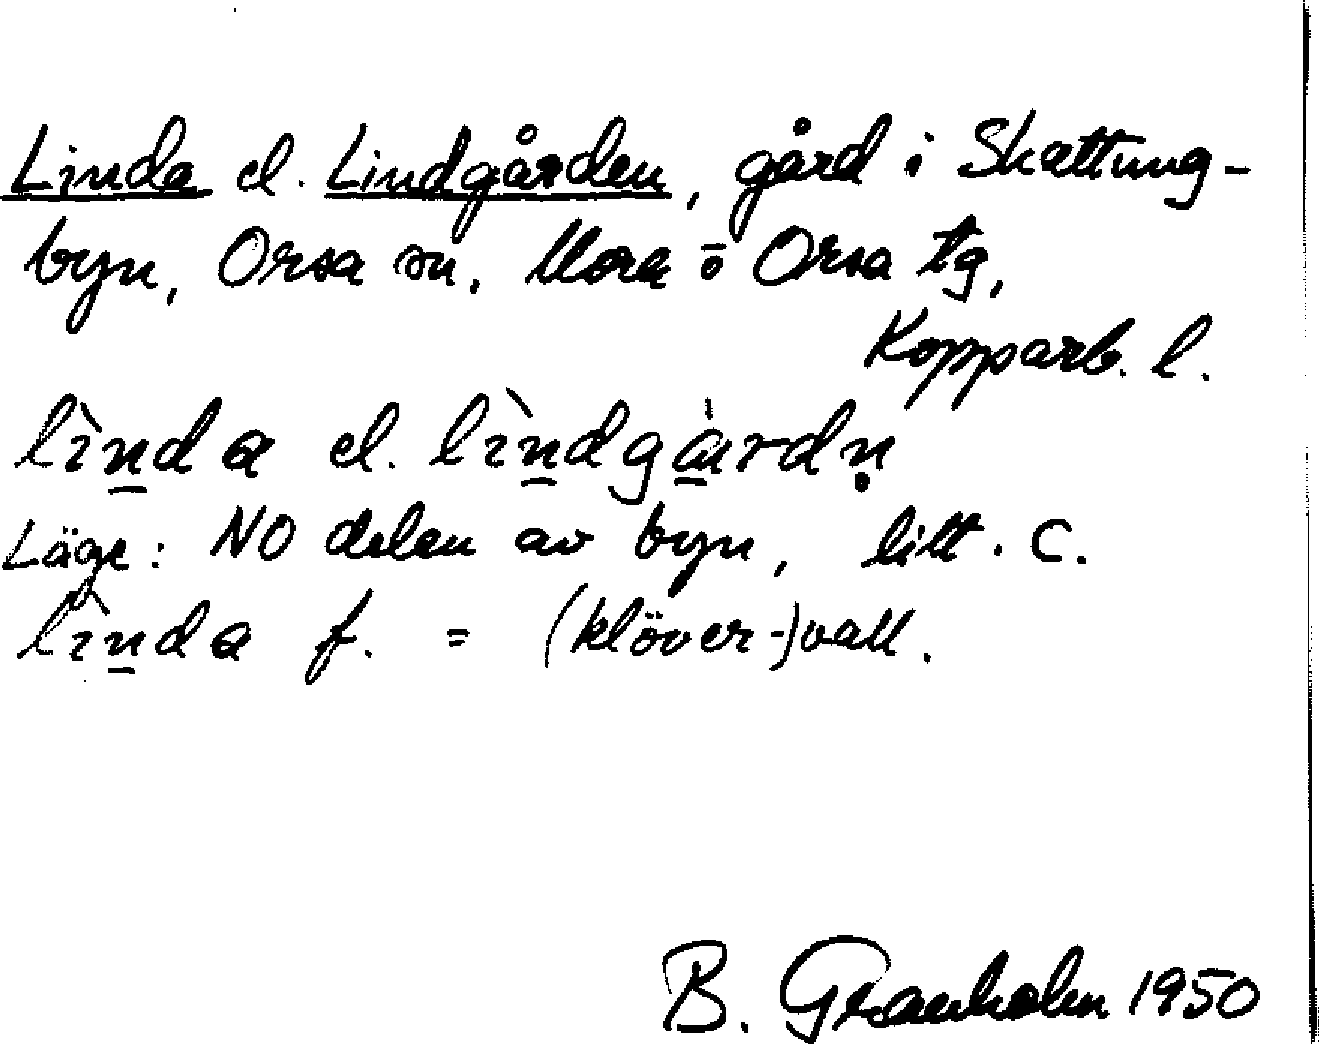 Linda el. Lindgården, gård i Skattung-
byn, Orsa sn. Mora o Orsa tg,
Kopparb. l.
lìṉda el. lìṉdgå̱rdṇ
Läge: NO delen av byn, litt. C.
lìṉda f. = (klöver-)vall.
B. Granholm 1950